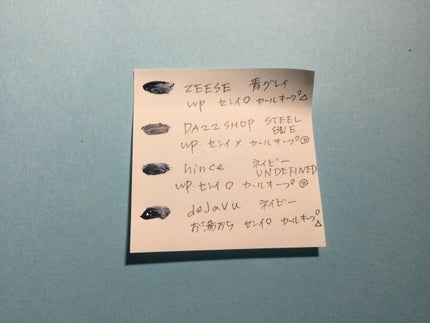 ZEESE 青グレイ
WP. センイ○ カールキープ△
DAZZSHOP STEEL
BLUE
WP. センイ× カールキープ◎
hince ネイビー
UNDEFINED
WP. センイ○ カールキープ◎
dejavu ネイビー
お湯から センイ○ カールキープ△